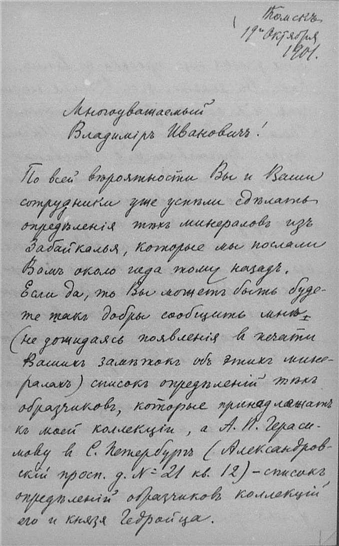 Томскъ.
19го Октября
1901.
Многоуважаемый
Владиміръ Ивановичъ!
По всей вѣроятности Вы и Ваши
сотрудники уже успѣли сдѣлать
опредѣленія тѣхъ минераловъ изъ
Забайкалья, которые мы послали
Вамъ около года тому назадъ.
Если да, то Вы можетъ быть буде-
те такъ добры сообщить мнѣ
(не дожидаясь появленія въ печати
Вашихъ замѣтокъ объ этихъ мине-
ралахъ) списокъ опредѣленій тѣхъ
образчиковъ, которые принадлежатъ
къ моей коллекціи, а А. П. Гераси-
мову въ С. Петербургъ (Александров-
скій просп. д. № 21 кв. 12) – списокъ
опредѣленій образчиковъ коллекцій
его и князя Гедройца.